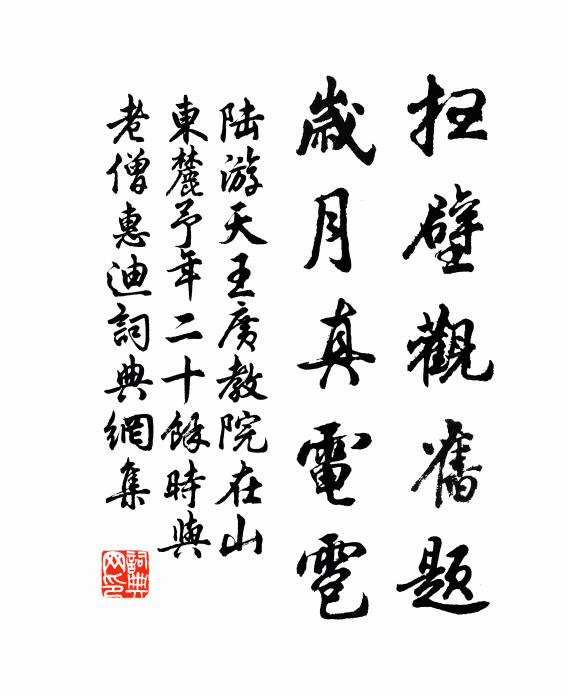 扫壁觀舊題
歲月真電雹
陸游天王廣教院在山
東麓予年二十餘時與
老僧惠迪詞典網集
詞典
网印